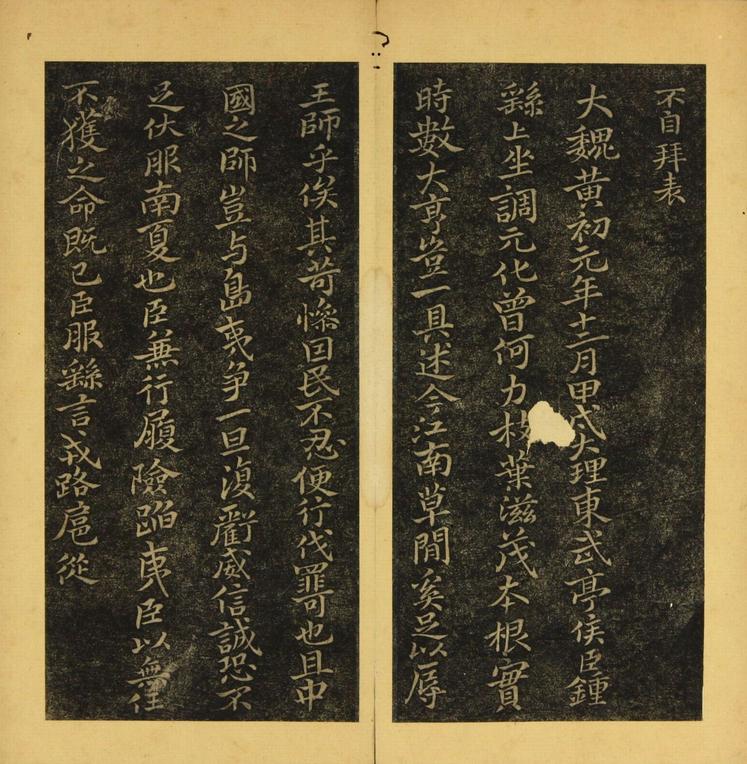 不自拜表
大魏黃初元年十二月甲戌大理東武亭侯臣鍾
繇上坐調元化曾何力枝葉滋茂本根實
時數大亨豈一具述今江南草間奚足以辱
王師乎俟其苛慘因民不忍便行伐罪可也且中
國之師豈与島夷爭一旦復虧威信誠恐不
足伏服南夏也臣無行履險蹈夷臣以無任
不獲之命既已臣服繇言戎路扈從